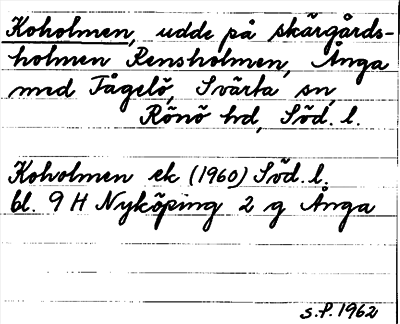 Koholmen, udde på skärgårds-
holmen Rensholmen, Ånga
med Fågelö, Svärta sn,
Rönö hd, Söd. l.
Koholmen ek (1960) Söd. l.
bl. 9 H Nyköping 2 g Ånga
S.P. 1962